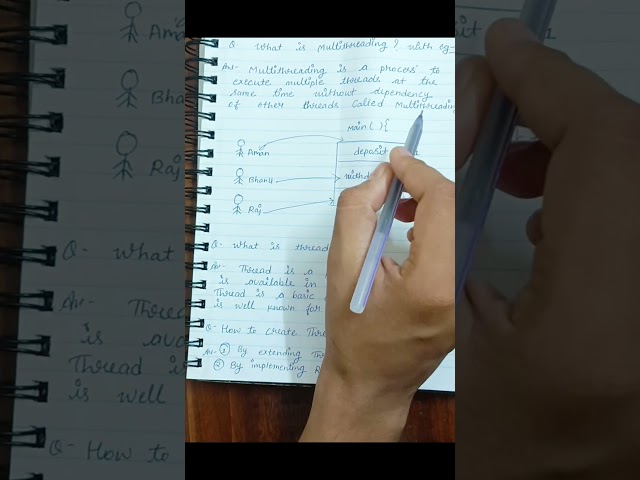 Q What is Multithreading? with eg-
Ans- Multithreading is a process to
execute multiple threads at the
same time without dependency
of other threads called Multithreading
Main( ){
Aman
deposit
Bhanu
withd
Raj
Q- What is thread
Ans- Thread is a
is available in
Thread is a basic
is well known for
Q- How to create Thre
Ans- ① By extending Th
② By implementing R